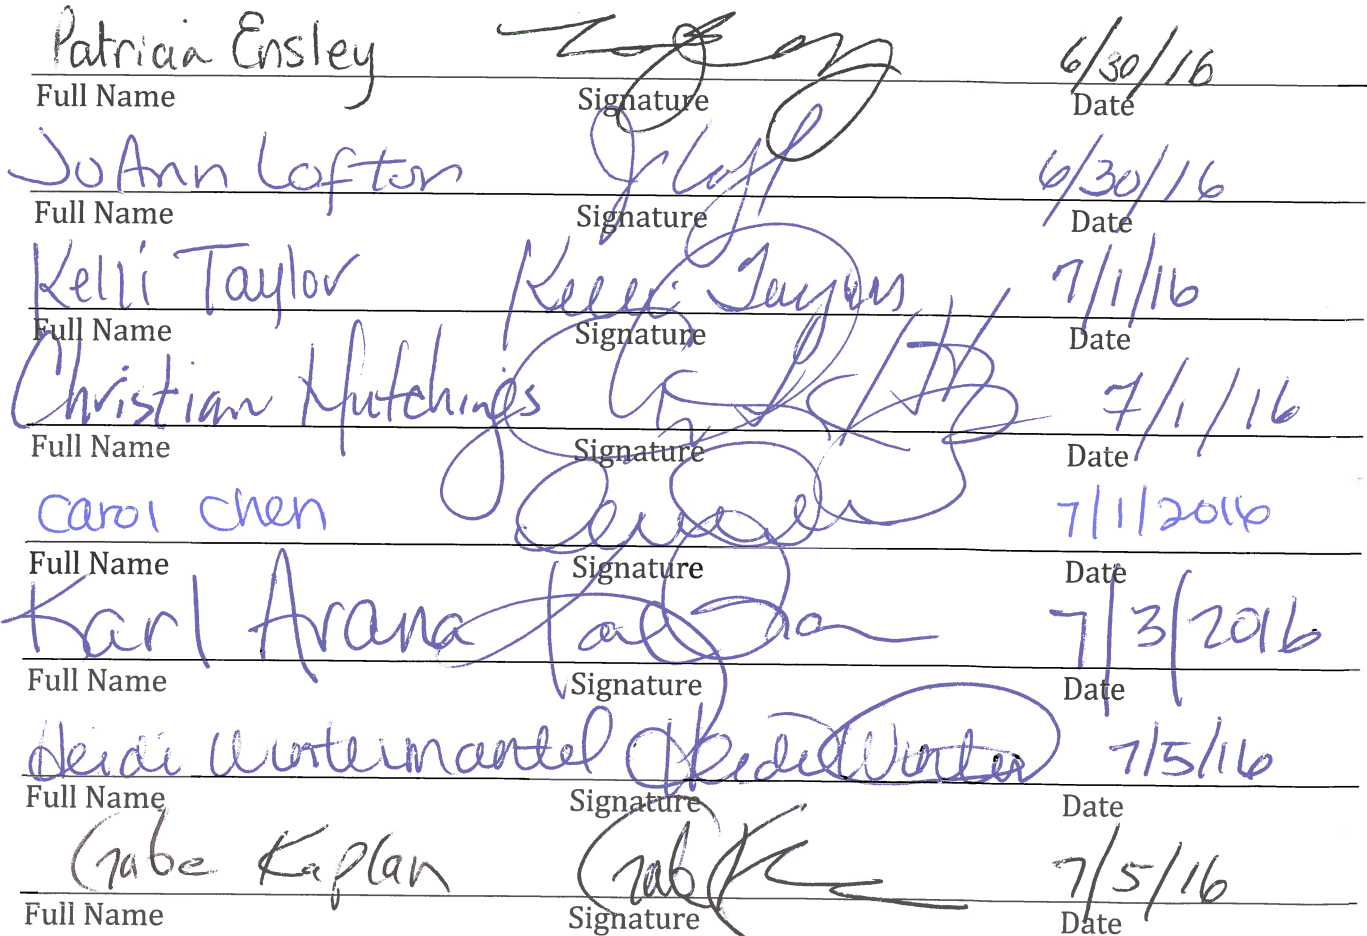 Patricia Ensley 6/30/16
Full Name Signature Date
JoAnn Lofton J Loft 6/30/16
Full Name Signature Date
Kelli Taylor Kelli Taylor 7/1/16
Full Name Signature Date
Christian Hutchings 7/1/16
Full Name Signature Date
Carol Chen 7/1/2016
Full Name Signature Date
Karl Arana 7/3/2016
Full Name Signature Date
Heidi Wintermantel Heidi Winter 7/5/16
Full Name Signature Date
Gabe Kaplan Gab K 7/5/16
Full Name Signature Date